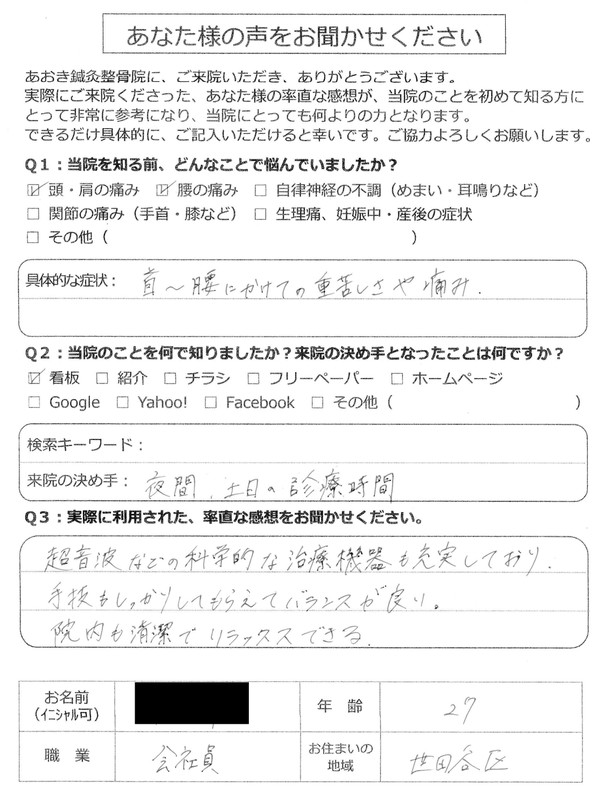 あなた様の声をお聞かせください
あおき鍼灸整骨院に、ご来院いただき、ありがとうございます。
実際にご来院くださった、あなた様の率直な感想が、当院のことを初めて知る方に
とって非常に参考になり、当院にとっても何よりの力となります。
できるだけ具体的に、ご記入いただけると幸いです。ご協力よろしくお願いします。
Q1：当院を知る前、どんなことで悩んでいましたか？
☑ 頭・肩の痛み ☑ 腰の痛み □ 自律神経の不調（めまい・耳鳴りなど）
□ 関節の痛み（手首・膝など） □ 生理痛、妊娠中・産後の症状
□ その他（ ）
具体的な症状： 首～腰にかけての重苦しさや痛み.
Q2：当院のことを何で知りましたか？来院の決め手となったことは何ですか？
☑ 看板 □ 紹介 □ チラシ □ フリーペーパー □ ホームページ
□ Google □ Yahoo! □ Facebook □ その他（ ）
検索キーワード：
来院の決め手： 夜間、土日の診療時間
Q3：実際に利用された、率直な感想をお聞かせください。
超音波などの科学的な治療機器も充実しており、
手技もしっかりしてもらえてバランスが良い。
院内も清潔でリラックスできる.
お名前
（イニシャル可）
年 齢 27
職 業 会社員
お住まいの
地域 世田谷区